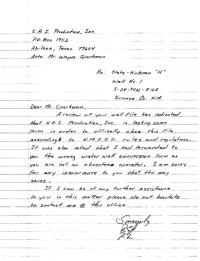 E.R.I. Production, Inc.
P.O. Box 1953
Abilene, Texas 79604
Attn: Mr. Wayne Sparkman
Re: State-Kirkman "H"
Well No. 1
Dear Mr. Sparkman.
A review of your well file has indicated
that E.R.I. Production, Inc. is lacking some
form in order to officially when this file
accordingly to rules and regulations.
It was also noted that I had forwarded to
you the wrong water well form as
you are not an operator. I am sorry
for any inconvenience to you that this may
cause.
If I can be of any further assistance
to you in this matter please do not hesitate
to contact me @ this office
Sincerely